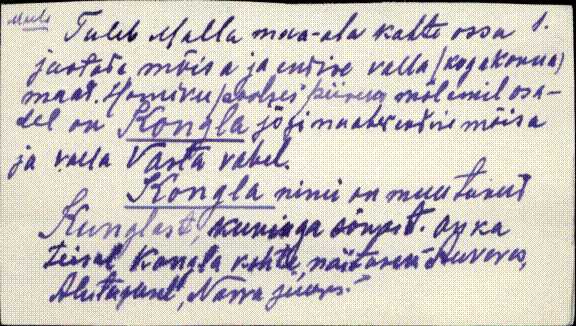 Malla
Tuleb Malla maa-ala kahte ossa 1.
jaotada, mõisa ja endise valla (kogukonna)
maad. Hommiku/poolses piiriks mõlemil osa-
del on Kongla jõgi maaks endise mõisa
ja valla Vasta vahel.
Kongla nimi on muutunud
Kunglast, kuninga sõnast. On ka
teisal Kongla kohte, näituseks
Alutagusel, Narva juures.